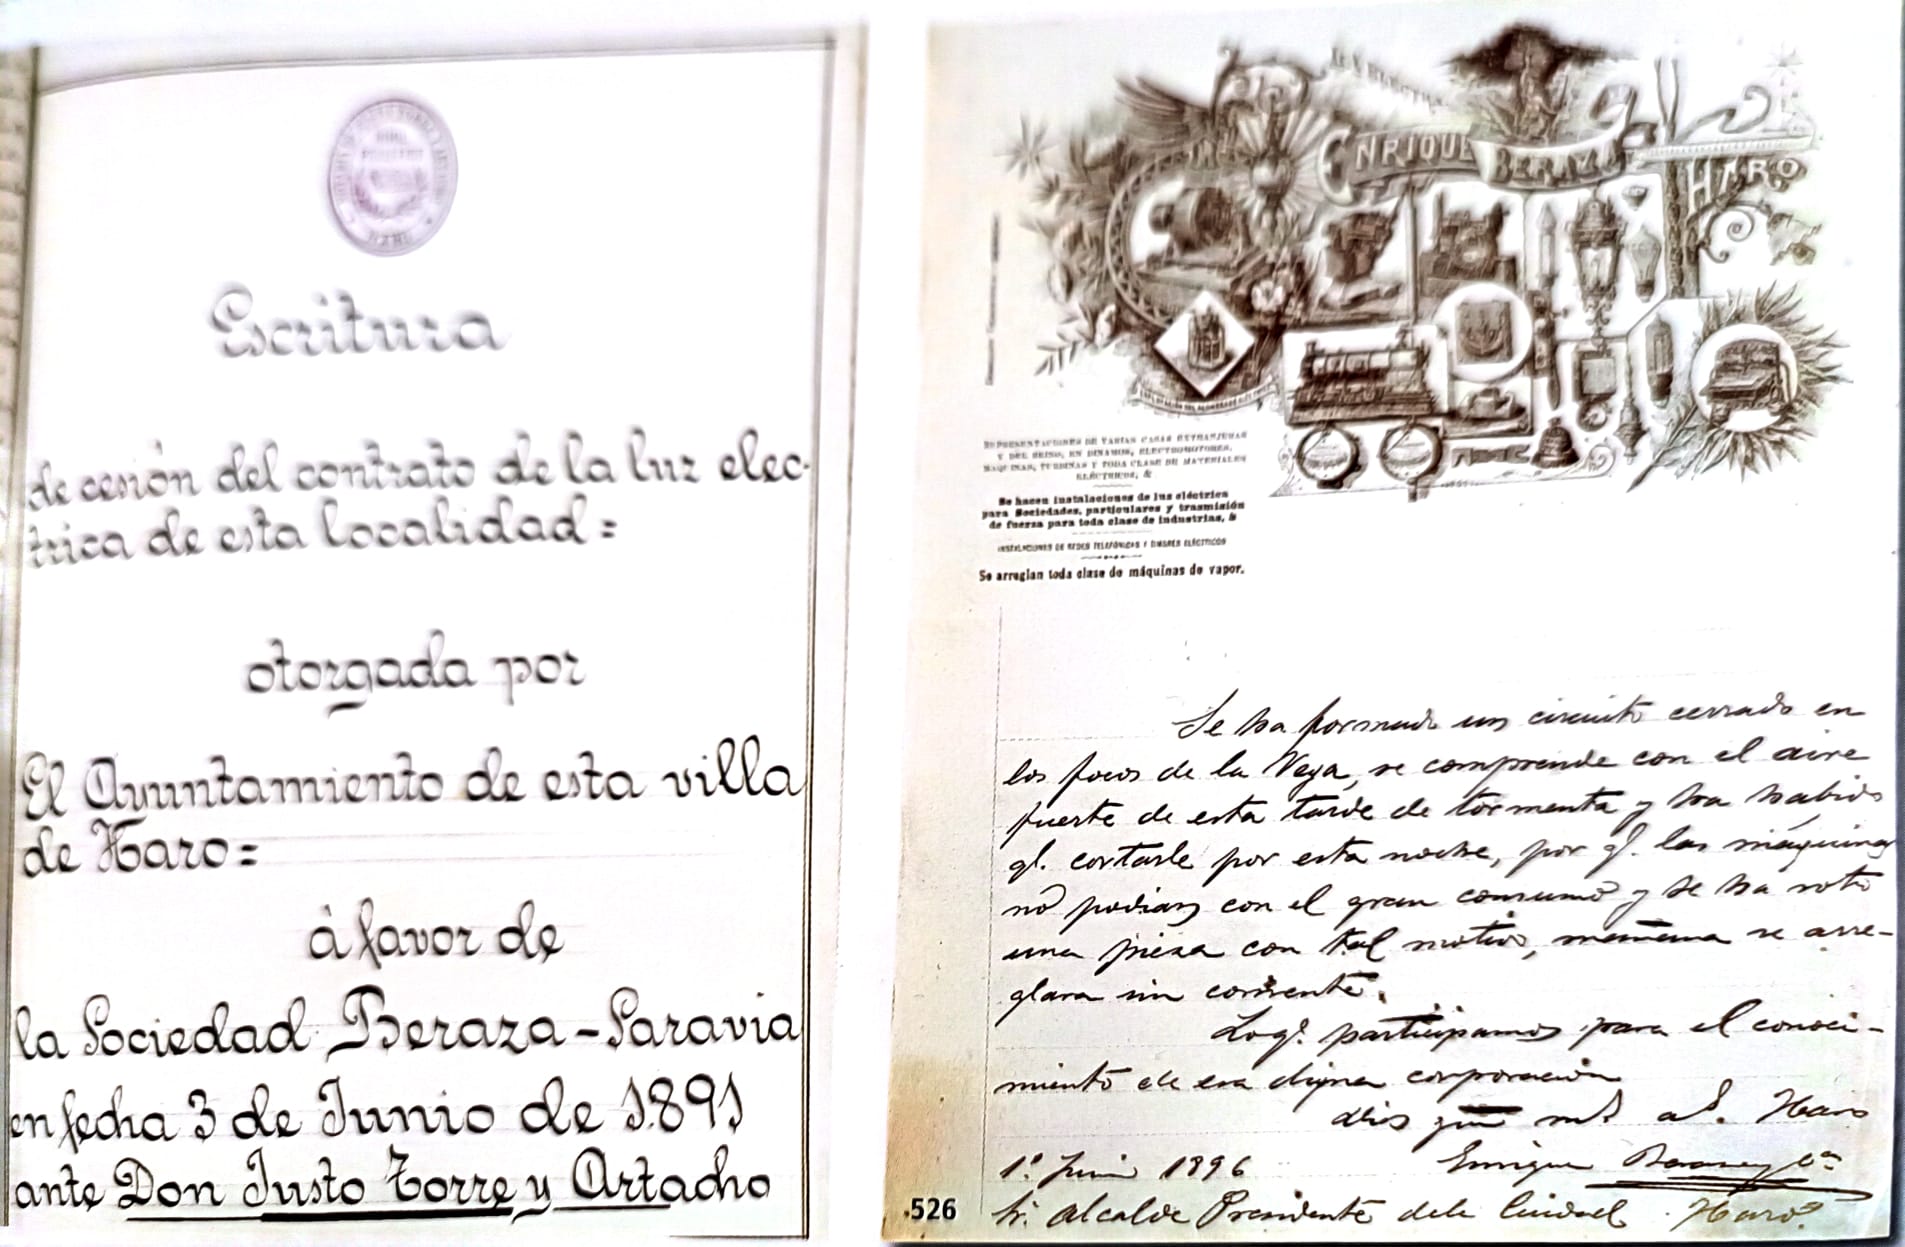 HARO
Escritura
de cesión del contrato de la luz elec-
trica de esta localidad=
otorgada por
El Ayuntamiento de esta villa
de Haro=
á favor de
la Sociedad Beraza-Saravia
en fecha 3 de Junio de 1.891
ante Don Justo Torre y Artacho
LA ELECTRA
ENRIQUE BERAZA
HARO
REPRESENTACIONES DE VARIAS CASAS EXTRANJERAS
Y DEL REINO, EN DINAMOS, ELECTROMOTORES,
MAQUINAS, TURBINAS Y TODA CLASE DE MATERIALES
ELÉCTRICOS, &
Se hacen instalaciones de luz eléctrica
para Sociedades, particulares y trasmisión
de fuerza para toda clase de industrias, &
INSTALACIONES DE REDES TELEFÓNICAS Y TIMBRES ELÉCTRICOS
Se arreglan toda clase de máquinas de vapor.
Se ha formado un circuito cerrado en
los focos de la Vega, se comprende con el aire
fuerte de esta tarde de tormenta y ha habido
q.e cortarle por esta noche, por q.e las máquinas
no podian con el gran consumo y se ha roto
una pieza con tal motivo, mañana se arre-
glara sin
Loq.e participamos para el conoci-
miento de esa digna corporación
Dios gue m.s a.s. Haro
1.º Junio 1896 Enrique Beraza y C.ia
Sr. Alcalde Presidente de la Ciudad Haro
526